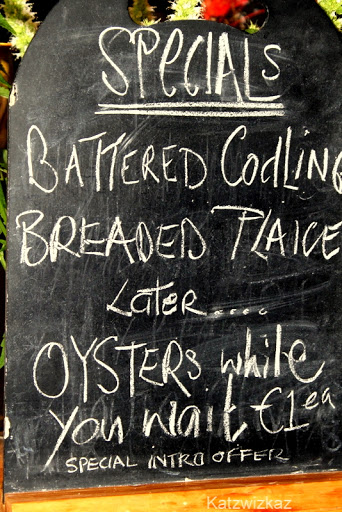 SPECIALS
BATTERED CODLING
BREADED PLAICE
LATER....
OYSTERS while
you wait €1ea
SPECIAL INTRO OFFER
Katzwizkaz